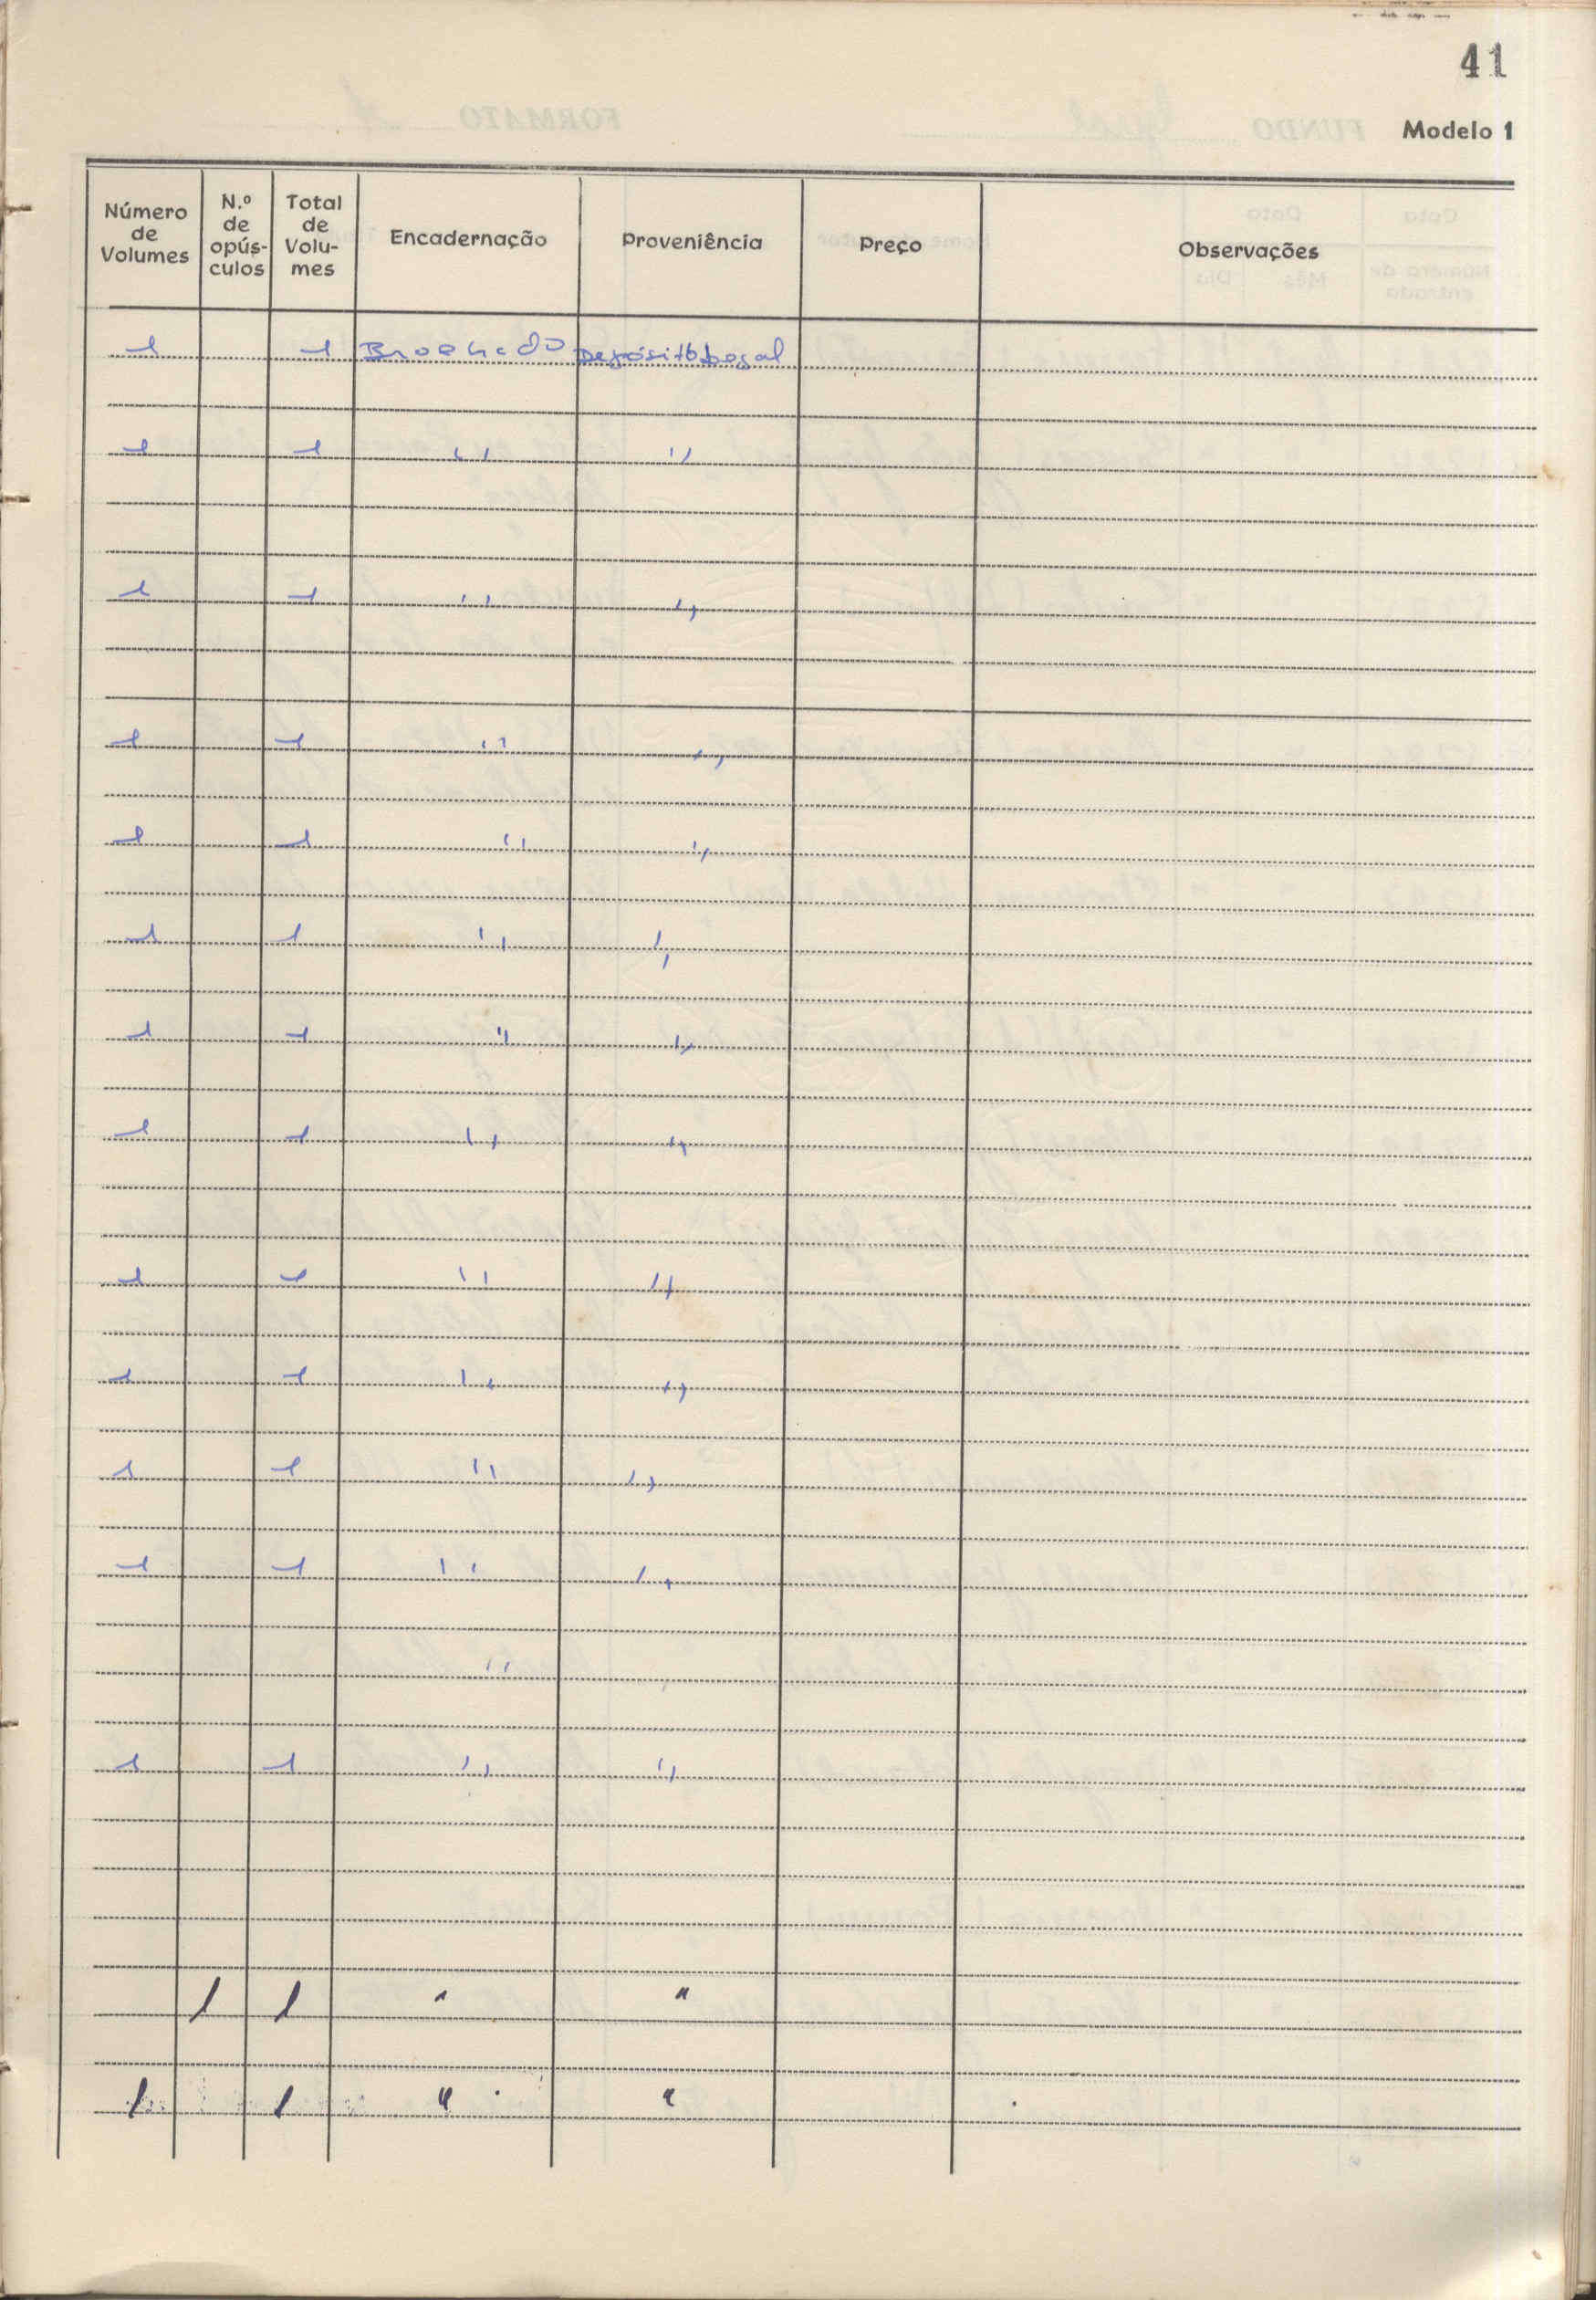 41
Modelo 1
Número de Volumes | N.º de opús-culos | Total de Volu-mes | Encadernação | Proveniência | Preço | Observações
1 | | 1 | Brochado | Depósito Legal
1 | | 1 | " | "
1 | | 1 | " | "
1 | | 1 | " | "
1 | | 1 | " | "
1 | | 1 | " | "
1 | | 1 | " | "
1 | | 1 | " | "
1 | | 1 | " | "
1 | | 1 | " | "
1 | | 1 | " | "
1 | | 1 | " | "
| | | " |
1 | | 1 | " | "
| 1 | 1 | " | "
1 | | 1 | " | "